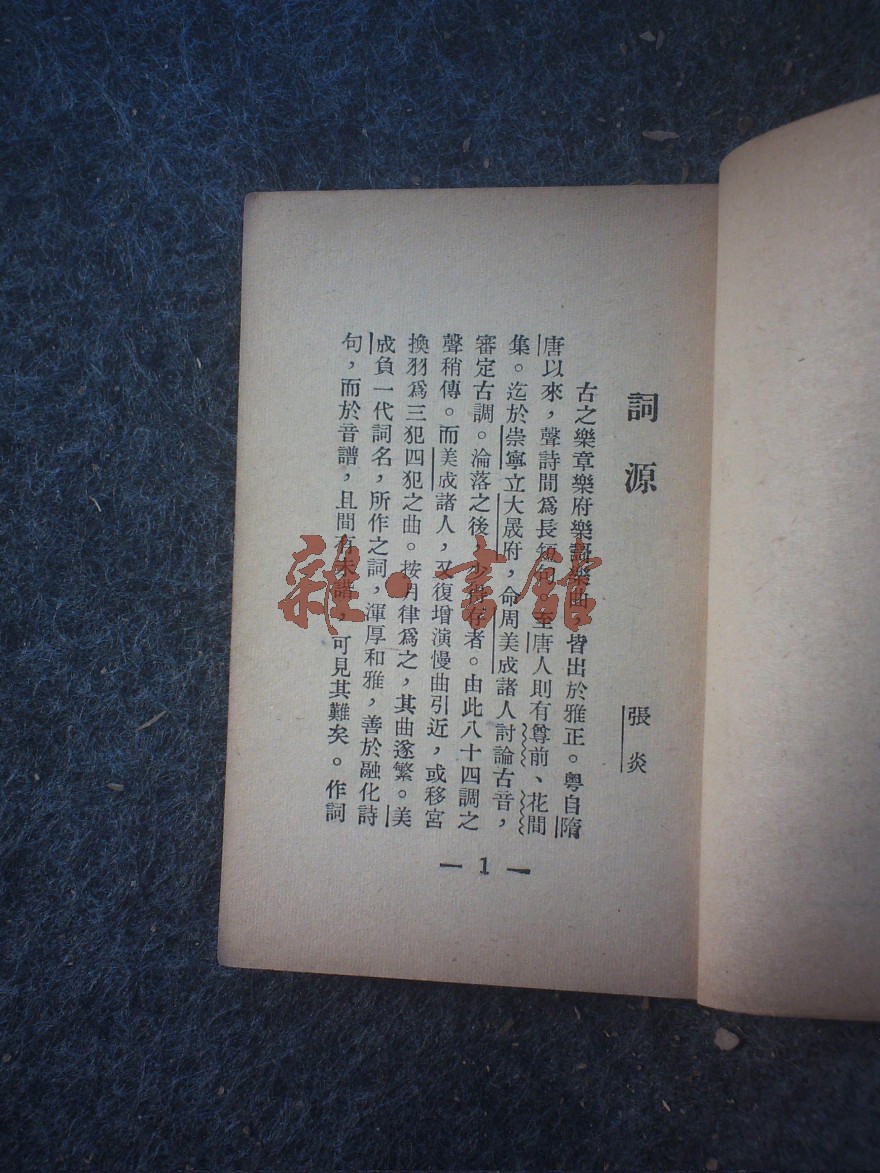 詞源
張炎
古之樂章樂府樂謌樂曲，皆出於雅正。粵自隋
唐以來，聲詩間爲長短句，至唐人則有尊前、花間
集。迄於崇寧立大晟府，命周美成諸人討論古音，
審定古調。淪落之後，少得存者。由此八十四調之
聲稍傳。而美成諸人，又復增演慢曲引近，或移宮
換羽爲三犯四犯之曲。按月律爲之，其曲遂繁。美
成負一代詞名，所作之詞，渾厚和雅，善於融化詩
句，而於音譜，且間有未諧，可見其難矣。作詞
— 1 —
雜·書館